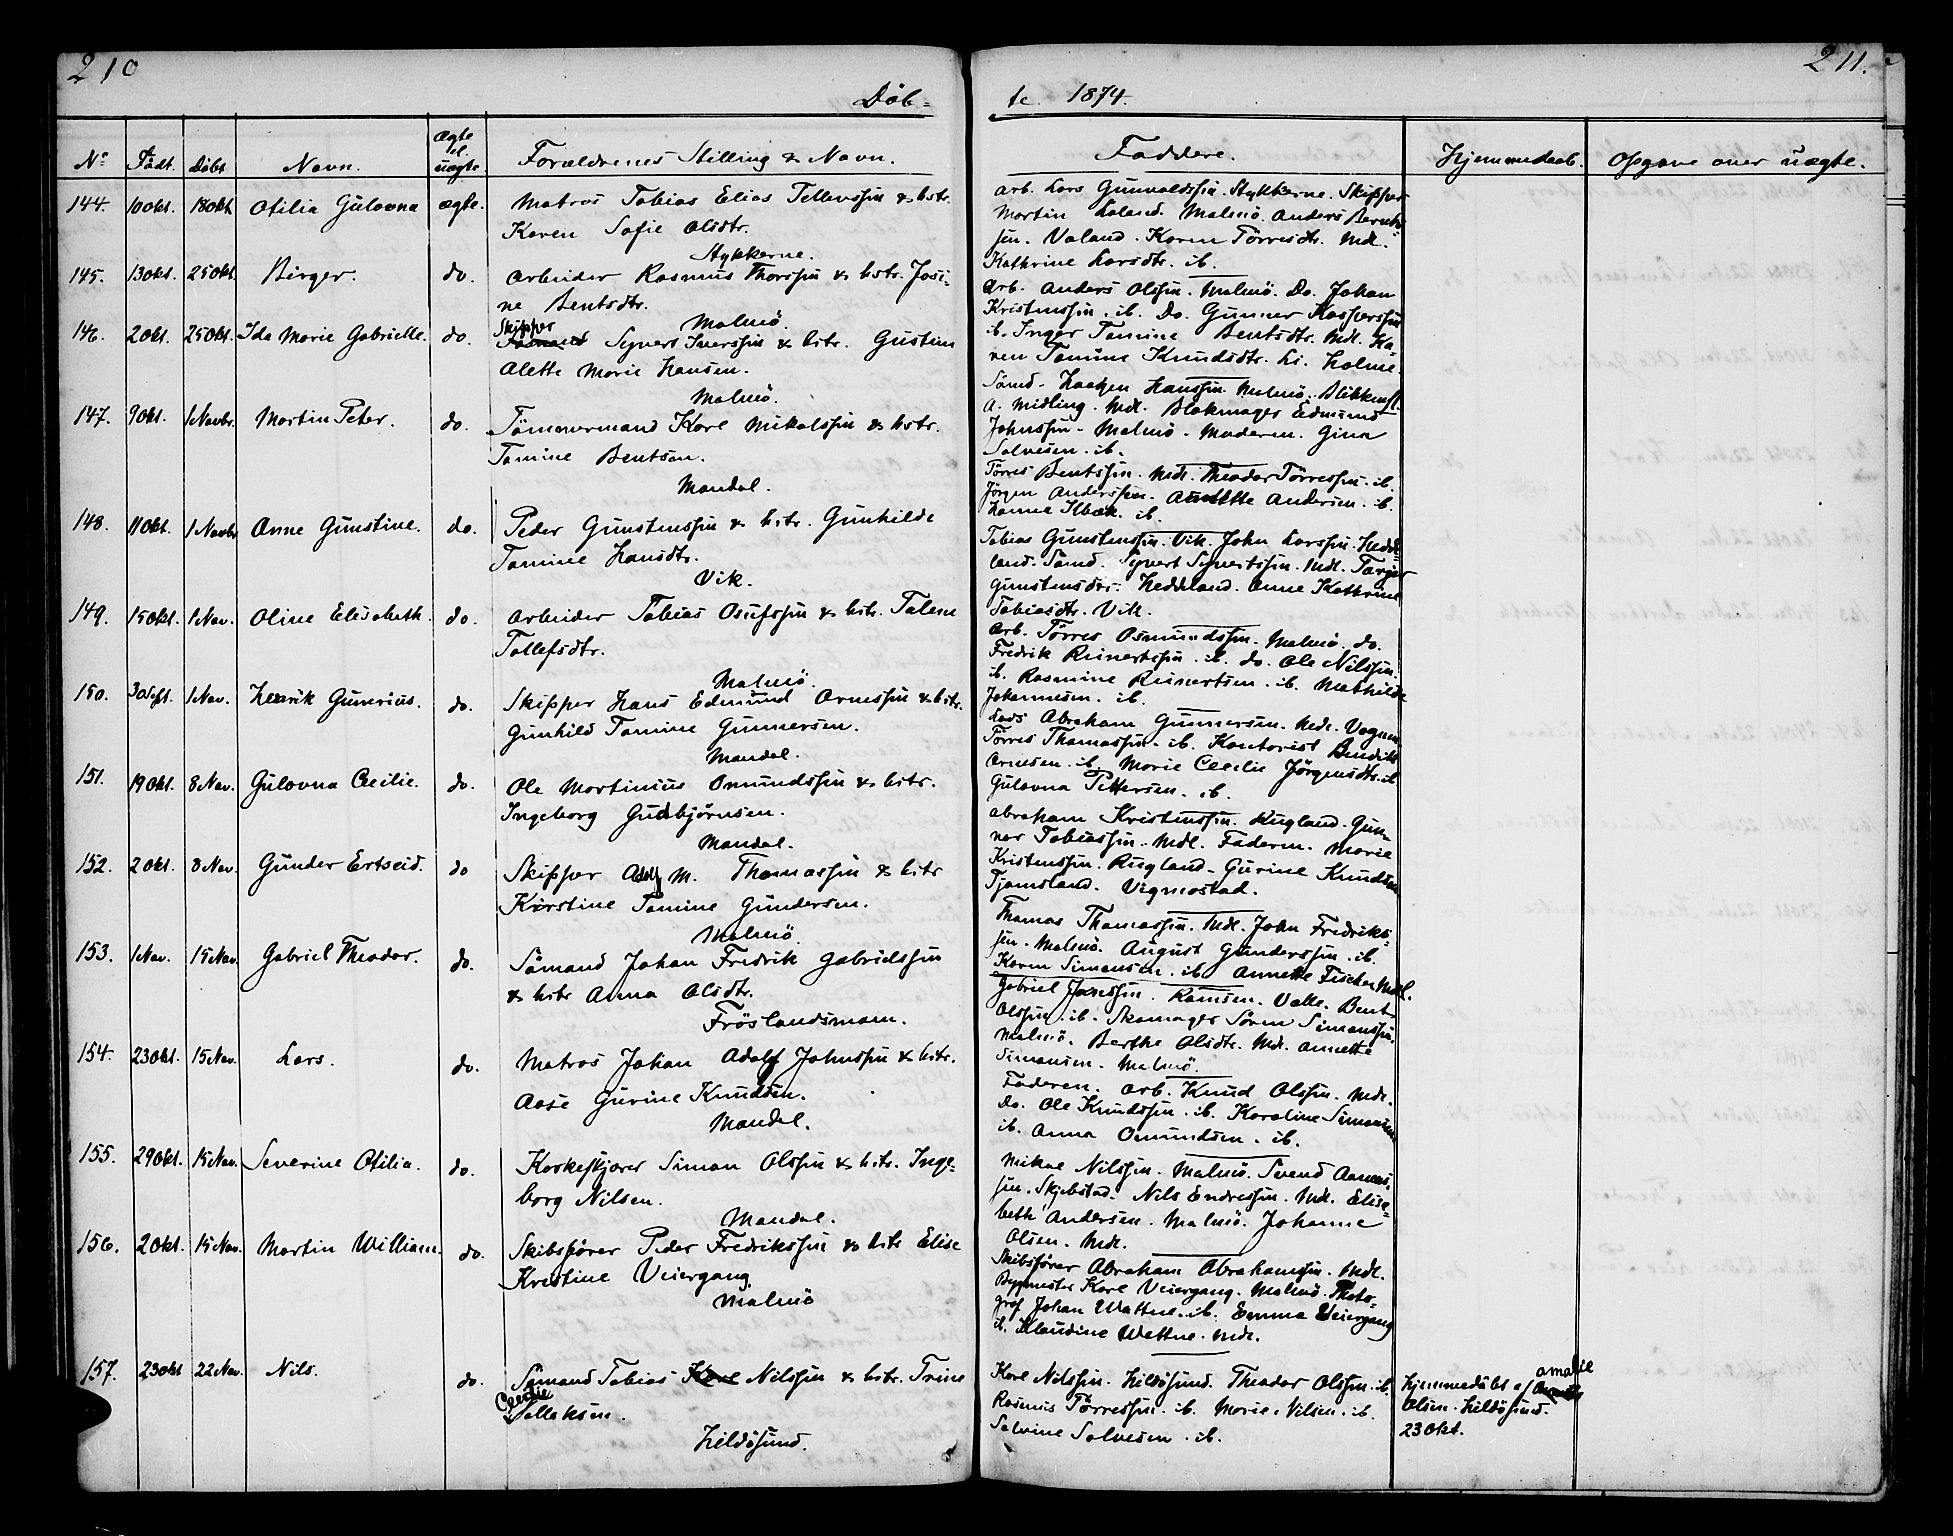 210
211.
Döb=
te 1874.
No
Födt.
Döbt
Navn.
Ægte el. uægte
Forældrenes Stilling & Navn.
Faddere.
Hjemmedaab.
Opgave over uægte.
144. 10 Okt. 18 Okt Otilia Gulovna ægte. Matros Tobias Elias Tellevssøn & hstr.
Karen Sofie Olsdtr.
Stykkerne.
Arb. Lars Gunvaldssøn. Stykkerne. Skipper
Martin Laland. Malmö. Anders Bernt
søn. Valand. Karen Törresdtr. Mdl.
Kathrine Larsdtr. ib.
145. 13 Okt. 25 Okt. Birger. do. Arbeider Rasmus Thorssøn & hstr. Josi-
ne Bentsdtr.
Malmö.
Arb. Anders Olssøn. Malmö. Do. Johan
Kristenssøn. ib. Do. Gunner Kasperssøn
ib. Inger Tomine Bentsdtr. Mdl. Ka-
ren Tomine Knudsdtr. Li. Holme.
146. 2 Okt. 25 Okt. Ida Marie Gabrielle. do. Skipper Syvert Iverssøn & hstr. Gustine
Alette Marie Hansen.
Malmö.
Sömd. Haagen Hanssøn. Malmö. Blikkensl.
A. Midling. Mdl. Blokmager Edmund
Johnssøn. Malmö. Moderen. Gina
Salvesen. ib.
147. 9 Okt. 1 Novbr. Martin Peter. do. Tömmermand Karl Mikalssøn & hstr.
Tomine Bentsen.
Mandal.
Törres Bentssøn. Mdl. Theodor Törressøn. ib.
Jörgen Anderssøn. Anette Andersen. ib.
Hanna Kbæk. ib.
148. 11 Okt. 1 Novbr Anne Gunstine. do. Peder Gunstenssøn & hstr. Gunhilde
Tomine Hansdtr.
Vik.
Tobias Gunstenssøn. Vik. John Larssøn. Hedde-
land. Sømd. Syvert Syvertssøn. Mdl. Torjer
Gunstensdtr. Heddeland. Anne Kathrine
Tobiasdtr. Vik.
149. 15 Okt. 1 Nov. Oline Elisabeth. do. Arbeider Tobias Osufssøn & hstr. Talene
Tollefsdtr.
Malmö.
Arb. Törres Osmundssøn. Malmö. do.
Fredrik Reinertssøn. ib. do. Ole Nilssøn.
ib. Rasmine Reinertsen. ib. Mathilde
Johannesen. ib.
150. 30 Sept. 1 Nov. Henrik Gunerius. do. Skipper Hans Edmund Arnessøn & hstr.
Gunhild Tomine Gunnersen.
Mandal.
Lods Abraham Gunnersen. Mdl. Vognm.
Törres Thomassøn. ib. Kontorist Bendikt
Arnesen. ib. Marie Cecilie Jörgensdtr. ib
Gulovna Pettersen. ib.
151. 19 Okt. 8 Nov. Gulovna Cecilie. do. Ole Martinius Omundssøn & hstr.
Ingeborg Gudbjörnsen.
Mandal.
Abraham Kristenssøn. Rugland. Gun-
ner Tobiassøn. Mdl. Faderen. Marie
Kristenssøn. Rugland. Gurine Knudsen
Tjomsland. Vigmostad.
152. 2 Okt. 8 Nov. Gunder Ertseid. do Skipper Adolf M. Thomassøn & hstr
Kirstine Tomine Gundersen.
Malmö.
Thomas Thomassøn. Mdl. John Fredriks-
søn. Malmö. August Gunderssøn. ib.
Karen Simonsen. ib. Annette Fischer Mdl.
153. 1 Nov. 15 Nov. Gabriel Theodor. do. Sömand Johan Fredrik Gabrielssøn
& hstr Anna Olsdtr.
Fröslandsmoen.
Gabriel Jonssøn. Ramsen. Valle. Bent
Olssøn. ib. Skomager Sören Simonssøn.
Malmö. Berthe Olsdtr. Mdl. Annette
Simonsen. Malmö.
154. 23 Okt. 15 Nov. Lars. do. Matros Johan Adolf Johnssøn & hstr.
Aase Gurine Knudsen.
Mandal.
Faderen. Arb. Knud Olssøn. Mdl.
Do. Ole Knudssøn. ib. Karoline Simonsen
ib. Anna Omundsen. ib.
155. 29 Okt. 15 Nov. Severine Otilia. do. Korkeskjærer Simon Olssøn & hstr. Inge-
borg Nilsen.
Mandal.
Mikal Nilssøn. Malmö. Svend Aanens-
søn. Skjebstad. Nils Endressøn. Mdl. Elisa-
beth Andersen. Malmö. Johanne
Olsen. Mdl.
156. 2 Okt. 15 Nov. Martin William. do. Skibsförer Peder Fredrikssøn & hstr Elise
Kristine Veiergang.
Malmö
Skibsförer Abraham Abrahamsøn. Mdl.
Bygmester Karl Veiergang. Malmö. Photo-
graf Johan Wattne. ib. Emma Veiergang
ib. Klaudine Wattne. Mdl.
157. 23 Okt 22 Nov. Nils. do. Sömand Tobias Karl Nilssøn & hstr. Trine
Cecilie Tellaksen.
Hildösund.
Karl Nilssøn. Hildösund. Theodor Olssøn. ib.
Rasmus Törressøn. ib. Marie Nilsen. ib.
Salvine Salvesen. ib.
Hjemmedöbt af Amalie
Olsen. Hildösund.
23 Okt.